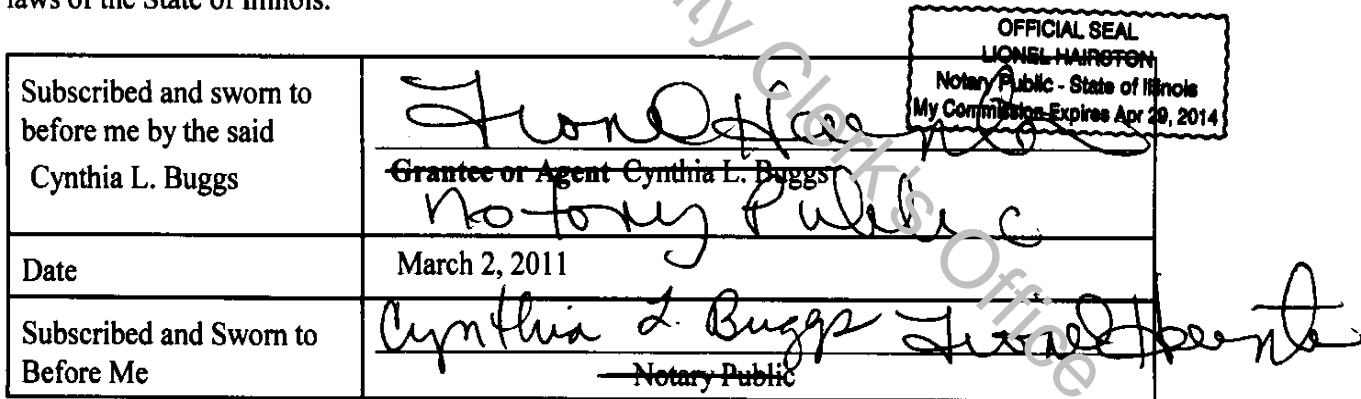 laws of the State of Illinois.
OFFICIAL SEAL
LIONEL HAIRSTON
Notary Public - State of Illinois
My Commission Expires Apr 29, 2014
Subscribed and sworn to
before me by the said
Cynthia L. Buggs
Lionel Hairston
Grantee or Agent Cynthia L. Buggs
Notary Public
Date
March 2, 2011
Subscribed and Sworn to
Before Me
Cynthia L. Buggs Lionel Hairston
Notary Public
ty Clerk's Office